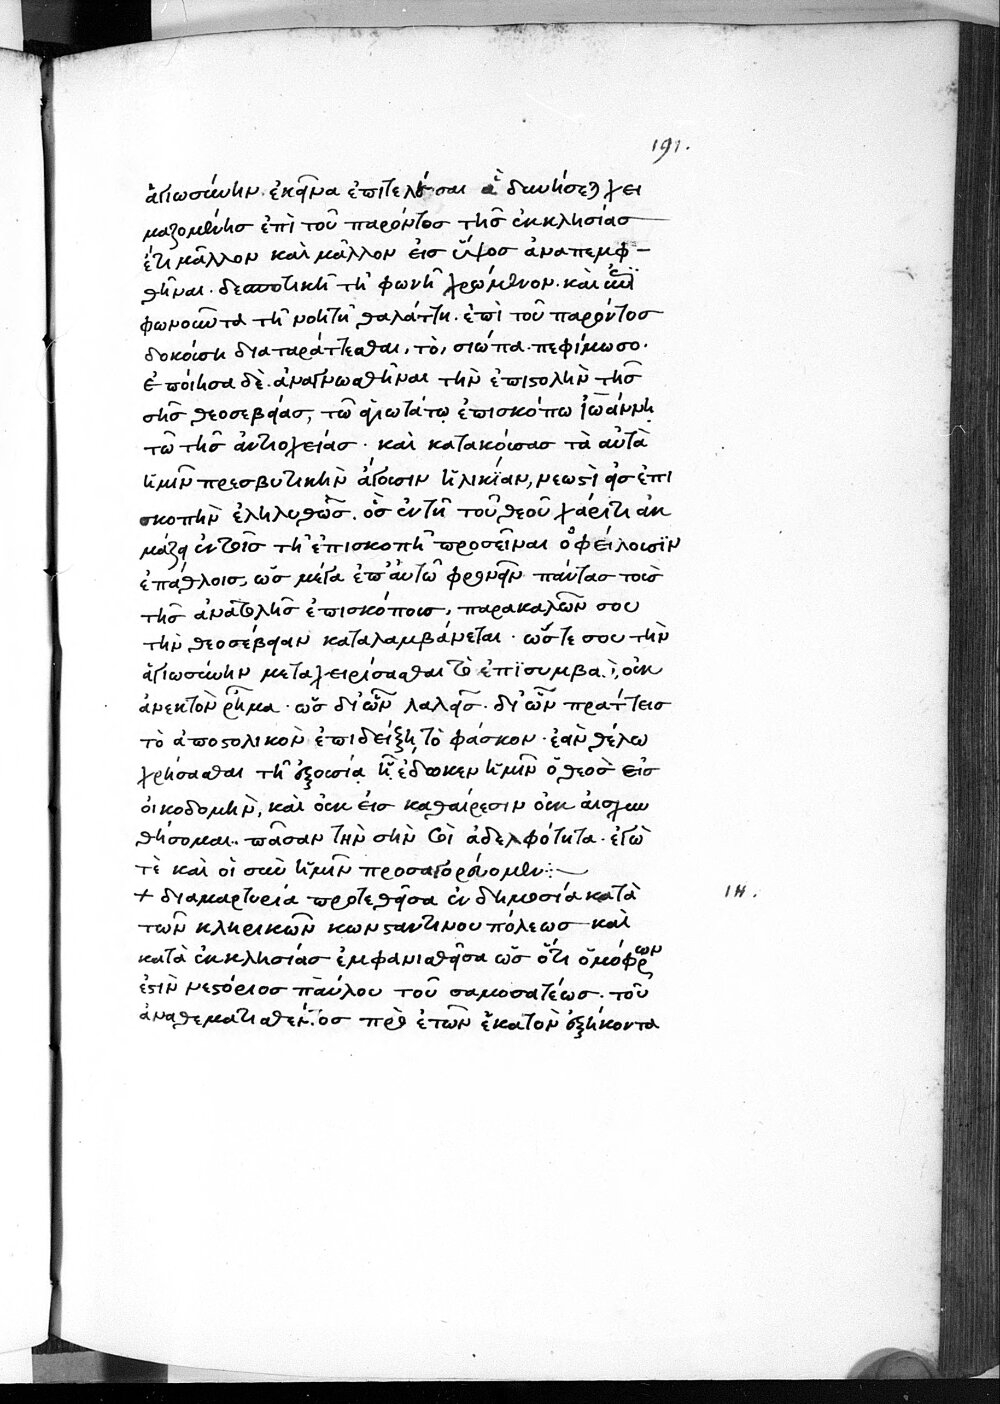 191.
ἁγιωσύνην. ἐκεῖνα ἐπιτελέσαι ἃ δυνήσεται χει
μαζομένης ἐπὶ τοῦ παρόντος τῆς ἐκκλησίας
ἔτι μᾶλλον καὶ μᾶλλον εἰς ὕψος ἀναπεμφ-
θῆναι. δεσποτικῆ τῆ φωνῆ χρώμενον. καὶ
φωνοῦντα τῆ νοητῆ θαλάττη. ἐπὶ τοῦ παρόντος
δοκούση διαταράττεσθαι, τὸ, σιώπα πεφίμωσο.
ἐποίησα δὲ ἀναγνωσθῆναι τὴν ἐπιστολὴν τῆς
σῆς θεοσεβείας, τῶ ἁγιωτάτω ἐπισκόπω ἰωάννη
τῶ τῆς ἀντιοχείας. καὶ κατακούσας τὰ αὐτὰ
ἡμῖν πρεσβυτικὴν ἄγουσιν ἡλικίαν, νεωστὶ εἰς ἐπι
σκοπὴν ἐληλυθὼς. ὃς ἐν τῆ τοῦ θεοῦ χάριτι ἀκ
μάζει ἐν τοῖς τῆ ἐπισκοπῆ προσεῖναι ὀφείλουσϊν
ἐπάθλοις, ὡς μέγα ἐπ' αὐτῶ φρονεῖν πάντας τοὺς
τῆς ἀνατολῆς ἐπισκόπους, παρακαλῶν σου
τὴν θεοσέβειαν καταλαμβάνεται. ὥστε σου τὴν
ἁγιωσύνην μεταχειρίσασθαι τὸ ἐπϊσυμβὰν, οὐκ
ἀνεκτὸν ῥῆμα. ὡς δι' ὧν λαλεῖς. δι' ὧν πράττεις
τὸ ἀποστολικὸν ἐπιδείξη τὸ φάσκον. ἐὰν θέλω
χρήσασθαι τῆ ἐξουσία ἣ ἔδωκεν ἡμῖν ὁ θεὸς εἰς
οἰκοδομὴν, καὶ οὐκ εἰς καθαίρεσιν οὐκ αἰσχυν
θήσομαι. πᾶσαν τὴν σὴν σοὶ ἀδελφότητα. ἐγὼ
τὲ καὶ οἱ σὺν ἡμῖν προσαγορεύομεν:
+ διαμαρτυρία προτεθεῖσα ἐν δημοσία κατὰ ΙΗ.
τῶν κληρικῶν κωνσταντινουπόλεως καὶ
κατὰ ἐκκλησίας ἐμφανισθεῖσα ὡς ὅτι ὁμόφρων
ἐστὶν νεστόριος παύλου τοῦ σαμοσατέως. τοῦ
ἀναθεματισθέντος πρὸ ἐτῶν ἑκατὸν ἑξήκοντα